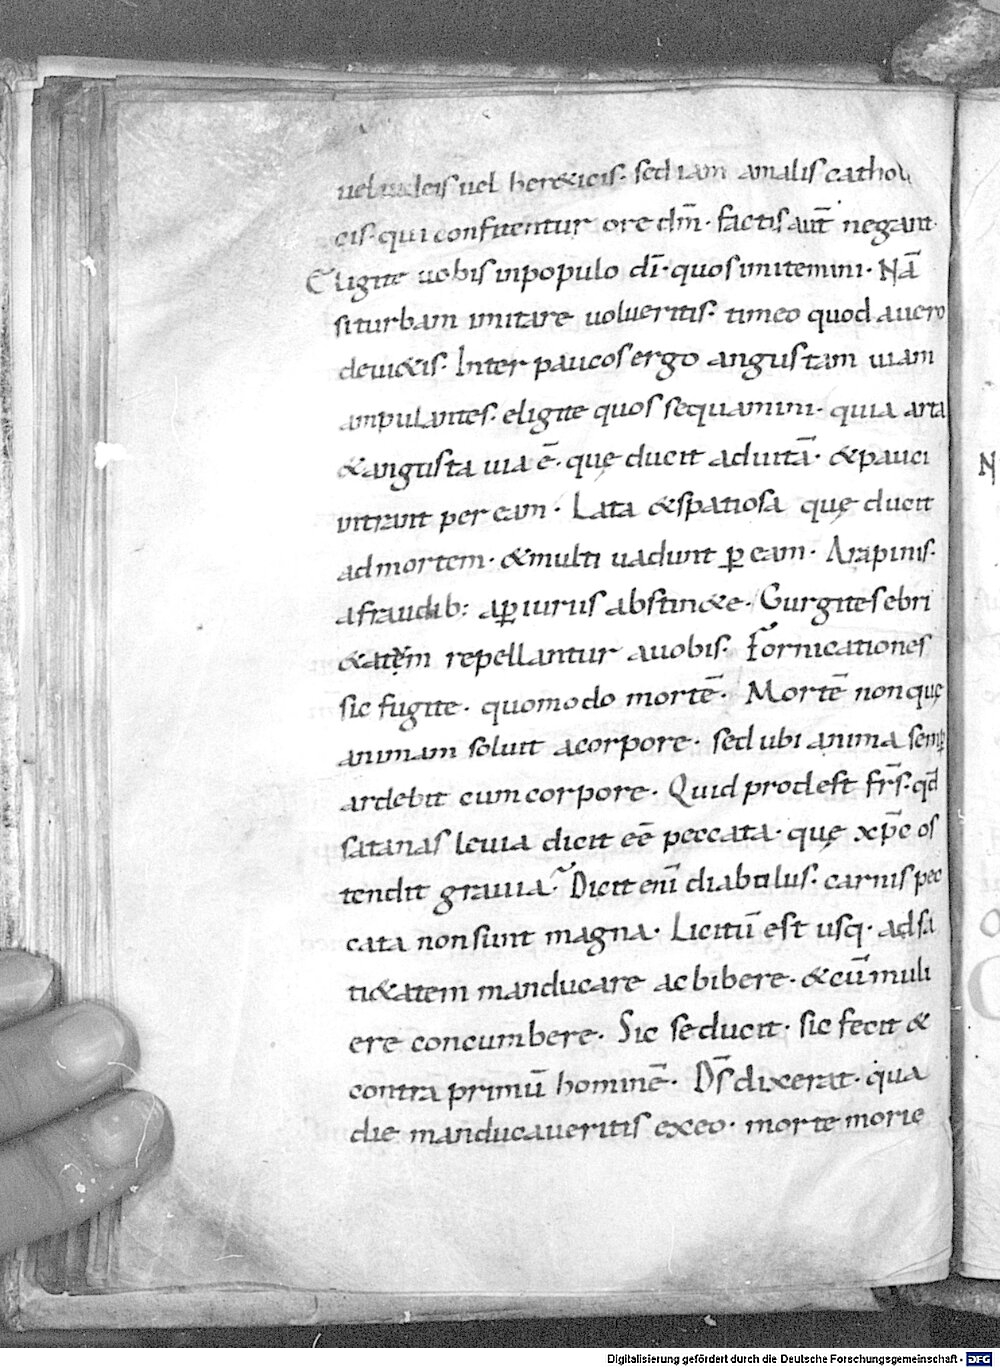 uel iudeis uel her&icis· sed iam amalis catholi
cis· qui confitentur ore dm̄· factis aut̄ negant·
Eligite uobis inpopulo dī· quos imitemini· Nā
si turbam imitare uolueritis· timeo quod auero
deui&is· Inter paucos ergo angustam uiam
ampulantes· eligite quos sequamini· quia arta
& angusta uia ē· quę ducit aduitā· & pauci
intrant per eam· Lata & spatiosa quę ducit
ad mortem· & multi uadunt ꝑ eam· Arapinis·
afraudib: aꝑiuriis abstin&e· Gurgites ebri
&atem repellantur auobis· Fornicationes
sic fugite· quomodo mortē· Mortē non quę
animam soluit acorpore· sed ubi anima semꝑ
ardebit cum corpore· Quid prodest frs̄· qđ
satanas leuia dicit eē peccata· quę xp̄c os
tendit grauia? Dicit eni diabulus· carnis pec
cata non sunt magna· Licitū est usq· adsa
ti&atem manducare ac bibere· & cū muli
ere concumbere· Sic seducit· sic fecit &
contra primū hominē· Ds̄ dixerat· qua
die manducaueritis exeo· morte morie
Digitalisierung gefördert durch die Deutsche Forschungsgemeinschaft - DFG